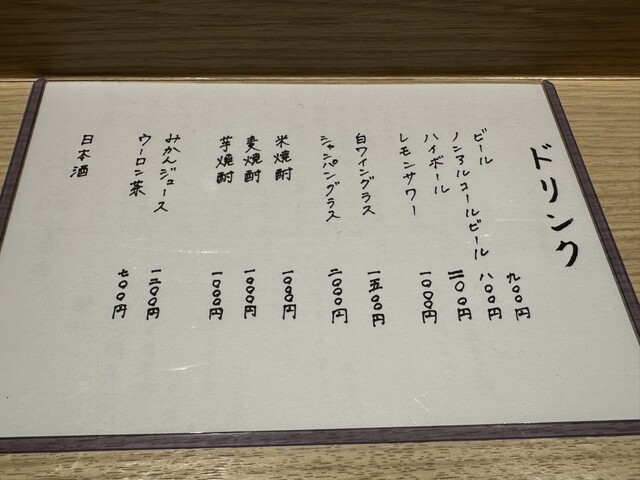 ドリンク
ビール 九〇〇円
ノンアルコールビール 八〇〇円
ハイボール 一二〇〇円
レモンサワー 一〇〇〇円
白ワイングラス 一五〇〇円
シャンパングラス 二〇〇〇円
米焼酎 一〇〇〇円
麦焼酎 一〇〇〇円
芋焼酎 一〇〇〇円
みかんジュース 一二〇〇円
ウーロン茶 七〇〇円
日本酒